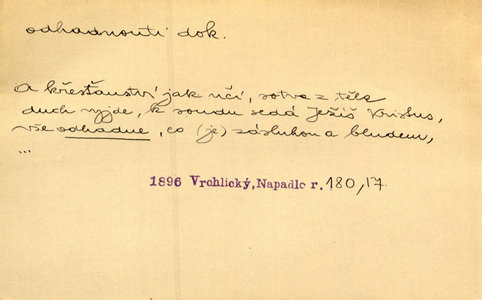 odhadnouti dok.
A křesťanství jak učí, sotva z těla
duch vyjde, k soudu sedá Ježíš Kristus,
vše odhadne, co (je) zásluhou a bludem,
...
1896 Vrchlický, Napadlo r. 180, 17.